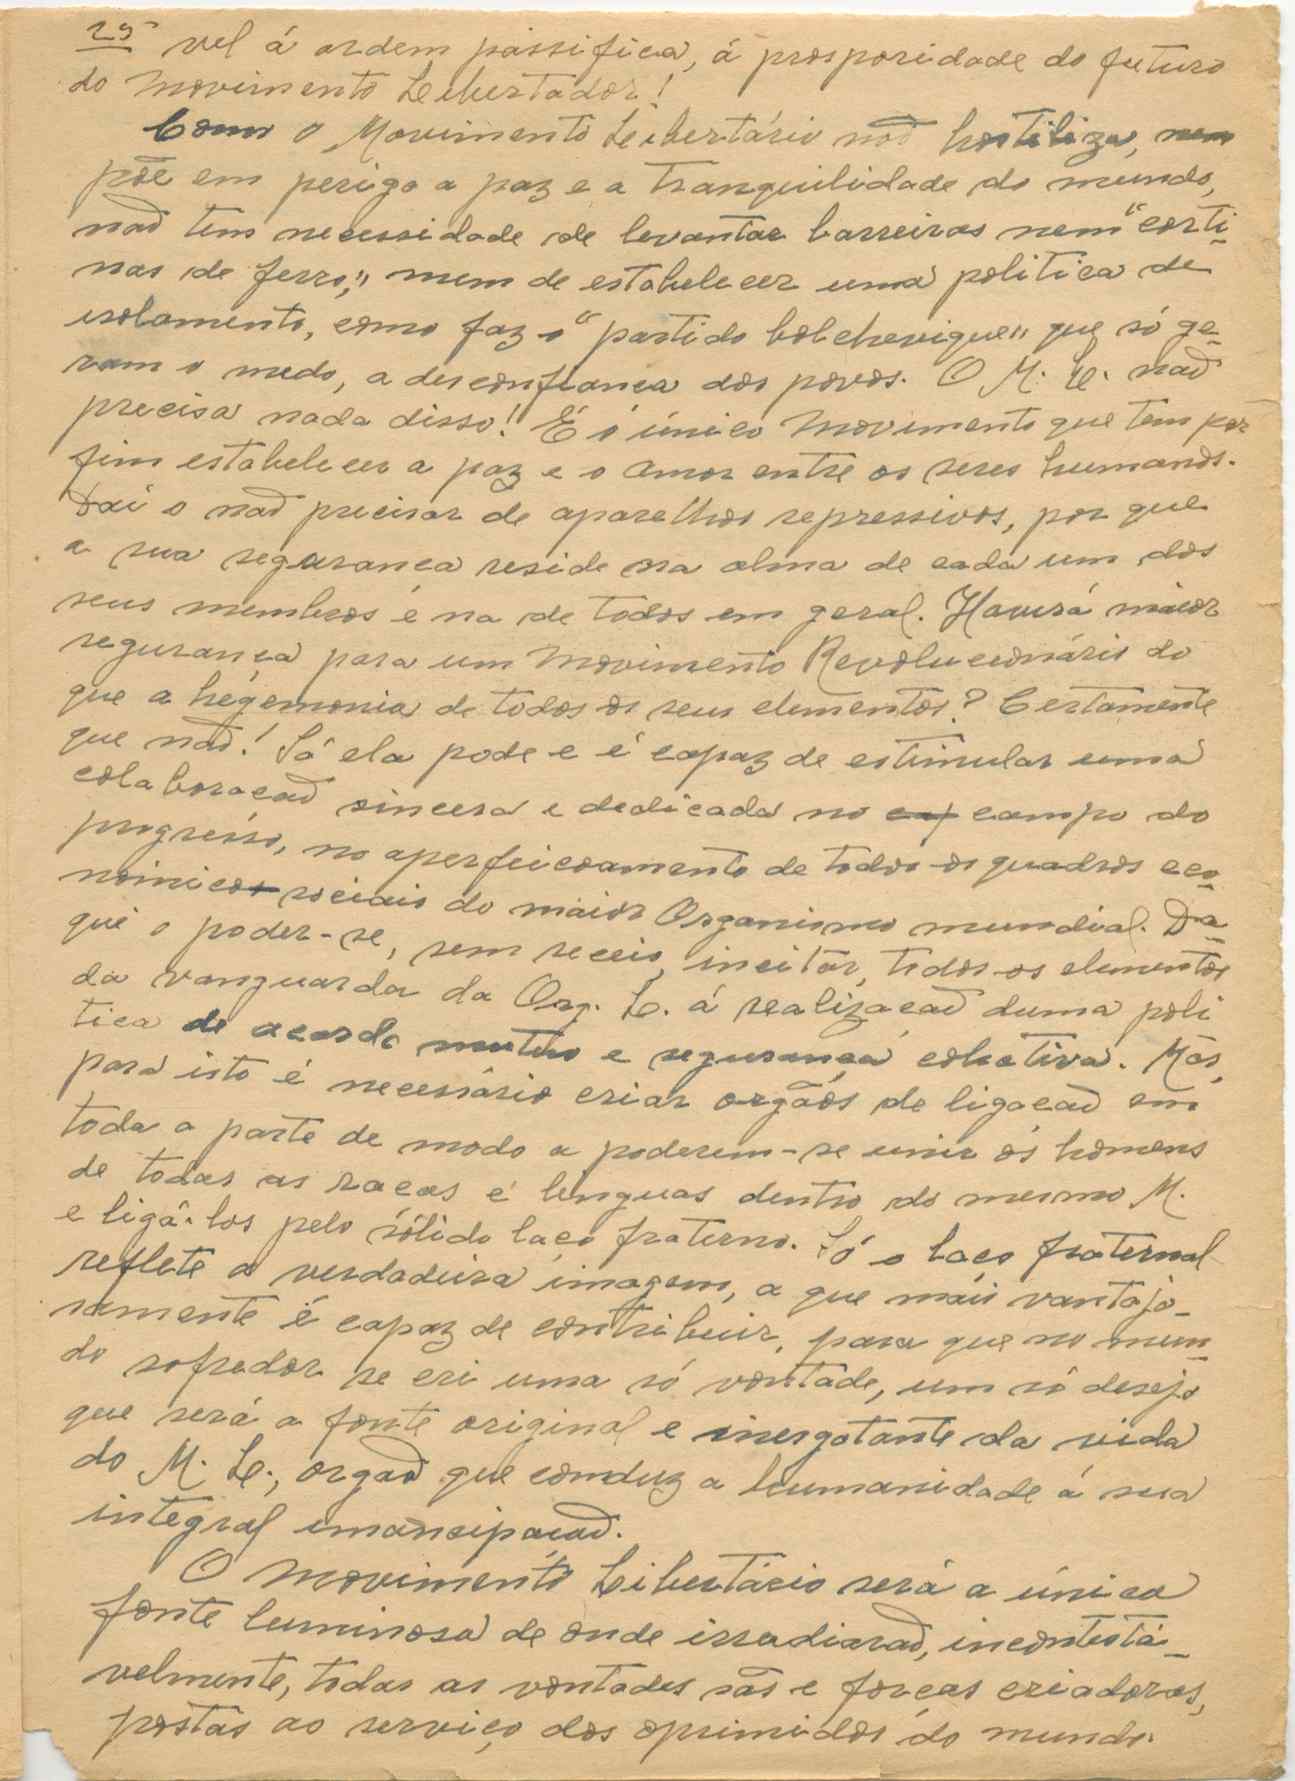 25 vel á ordem passifica, á prosporidade do futuro
do Movimento Libertador!
Como o Movimento Libertário naõ hostiliza, nem
põe em perigo a paz e a tranquilidade do mundo,
naõ tem necessidade de levantar barreiras nem "corti-
nas de ferro," nem de estabelecer uma politica de
isolamento, como faz o "partido bolchevique" que só ge-
ram o medo, a desconfianca dos povos. O M. L. naõ
precisa nada disso! É o único Movimento que tem por
fim estabelecer a paz e o amor entre os seres humanos.
Daí o naõ precisar de aparelhos repressivos, por que
a sua seguranca reside na alma de cada um dos
seus membros e na de todos em geral. Haverá maior
segurança para um Movimento Revolucionário do
que a hegemonia de todos os seus elementos? Certamente
que naõ! Só ela pode e é capaz de estimular uma
colaboracaõ sincera e dedicada no cap campo do
progresso, no aperfeicoamento de todos os quadros eco-
nómicos sociais do maior Organismo mundial. Da-
qui o poder-se, sem receio, incitar, todos os elementos
da vanguarda da Org. L. á realizacaõ duma poli
tica de acordo mutuo e segurança coletiva. Mas,
para isto é necessário criar orgãos de ligacaõ em
toda a parte de modo a poderem-se unir os homens
de todas as racas e linguas dentro do mesmo M.
e ligá-los pelo sólido laco fraterno. Só o laço fraternal
reflete a verdadeira imagem, a que mais vantajo-
samente é capaz de contribuir, para que no mun-
do sofredor se cri uma só vontade, um só desejo
que será a fonte original e inesgotante da vida
do M. L., orgaõ que conduz a humanidade á sua
integral emancipacaõ.
O Movimento Libertário será a única
fonte luminosa de onde irradiaraõ, incontestá-
velmente, todas as vontades sãs e forcas criadoras,
postas ao serviço dos oprimidos do mundo.